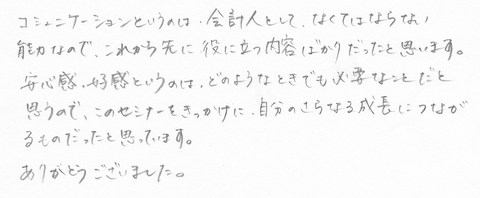 コミュニケーションというのは、会計人として、なくてはならない
能力なので、これから先に役に立つ内容ばかりだったと思います。
安心感、好感というのは、どのようなときでも必要なことだと
思うので、このセミナーをきっかけに、自分のさらなる成長につなが
るものだったと思っています。
ありがとうございました。